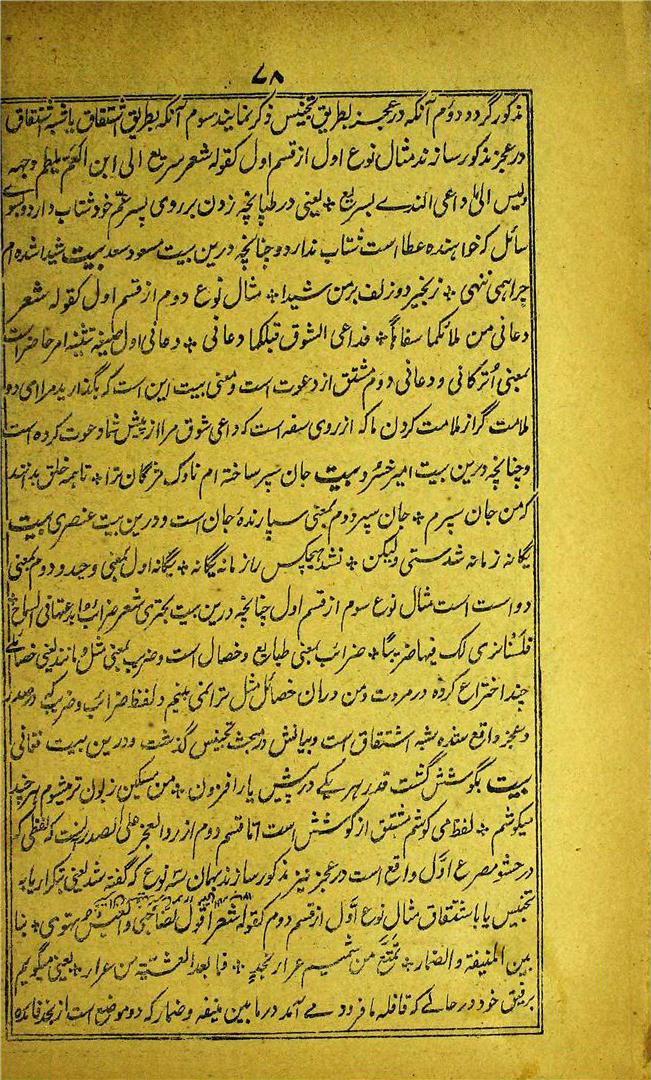 ۷۸
مذکور گردد دوم آنکه در عجز بطریق تجنیس ذکر نمایند سوم آنکه بطریق اشتقاق یا شبه اشتقاق
در عجز مذکور سازند مثال نوع اول از قسم اول کقوله شعر سریع الی ابن العم یلطم وجهه
ولیس الی داعی الندے بسریع ؞ یعنی در طپانچه زدن بر روی پسر عم خود شتاب دارد و بسوے
سائل که خواهنده عطا است شتاب ندارد و چنانچه درین بیت مسعود سعد بیت شیدا شده ام
چرا همی ننهی ؞ زنجیر دو زلف بر من شیدا ؞ مثال نوع دوم از قسم اول کقوله شعر
دعانی من ملامکما سفاهًا ؞ فداعی الشوق قبلکما دعانی ؞ دعانی اول صیغه تثنیه امر حاضر است
بمعنی اترکانی و دعانی دوم مشتق از دعوت است و معنی بیت این است که بگذارید مرا ای دو
ملامت گر از ملامت کردن ما که از روی سفه است که داعی شوق مرا از پیش شما دعوت کرده است
و چنانچه درین بیت امیر خسرو بیت جان سپر ساخته ام ناوک مژگان ترا ؞ تا همه خلق بدانند
که من جان سپرم ؞ جان سپر دوم بمعنی سپارنده جان است و درین بیت عنصری بیت
یگانه زمانه شدستی ولیکن ؞ نشد هیچکس را زمانه یگانه ؞ یگانه اول بمعنی وحید و دوم بمعنی
دوست است مثال نوع سوم از قسم اول چنانچه درین بیت بحتری شعر ضرائب ابدعتها فی السماح ؞
فلسنا نری لک فیها ضریبًا ؞ ضرائب بمعنی طبایع و خصال است و ضریب بمعنی مثل و مانند یعنی خصائلی
چند اختراع کرده در مروت و من دران خصائل مثل ترا نمی بینم و لفظ ضرائب و ضریب که در صدر
و عجز واقع شده شبه اشتقاق است و بیانش در مبحث تجنیس گذشت و درین بیت فغانی
بیت بکوشش گشت قدر هر یکے در پیش یار افزون ؞ من مسکین زبون تر میشوم هر چند
میکوشم ؞ لفظ می کوشم مشتق از کوشش است اما قسم دوم از رد العجز علی الصدر آنست که لفظی که
در حشو مصرع اول واقع است در عجز نیز مذکور سازند بهمان سه نوع که گفته شد یعنی بتکرار یا به
تجنیس یا باشتقاق مثال نوع اول از قسم دوم کقوله شعر اقول لصاحبی والعیس تهوی ؞ بنا
بین المنیفة والضمار ؞ تمتع من شمیم عرار نجد ؞ فما بعد العشیة من عرار ؞ یعنی میگویم
برفیق خود در حالے که قافله ما فرود مے آمد در ما بین منیفه و ضمار که دو موضع است از نجد فائده